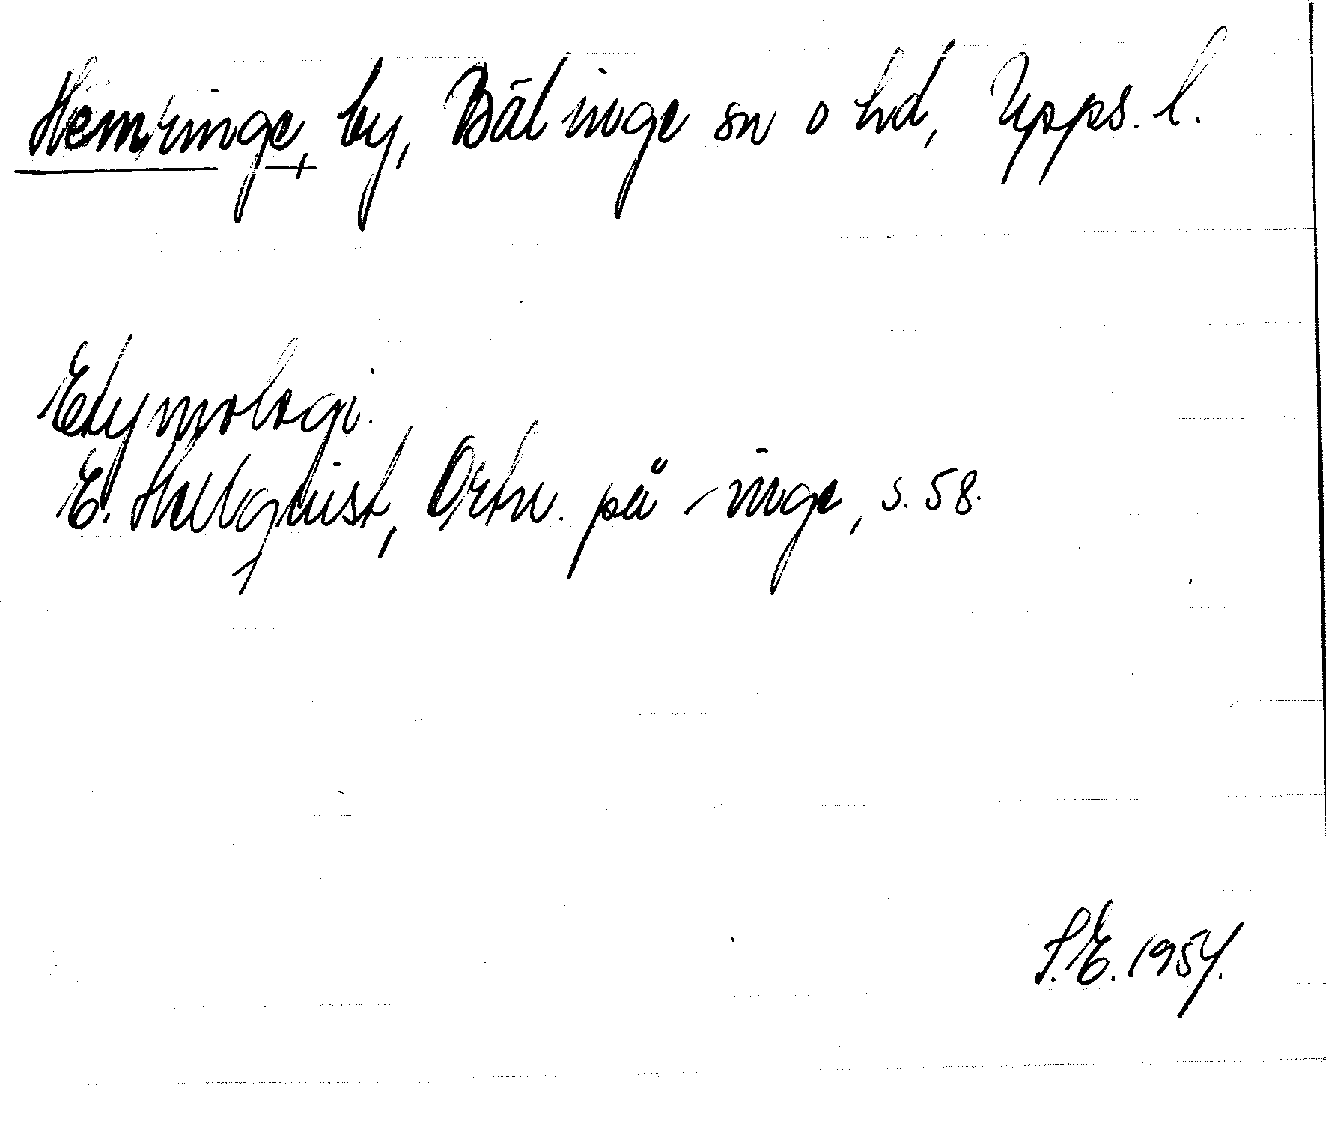 Hemringe, by, Bälinge sn o hd, Upps. l.
Etymologi.
E. Hellquist, Ortn. på -inge, s. 58.
S.E. 1954.